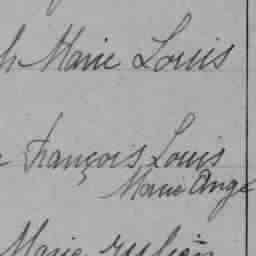 h Marie Louis
e François Louis
Marie Ange
Marie Julien